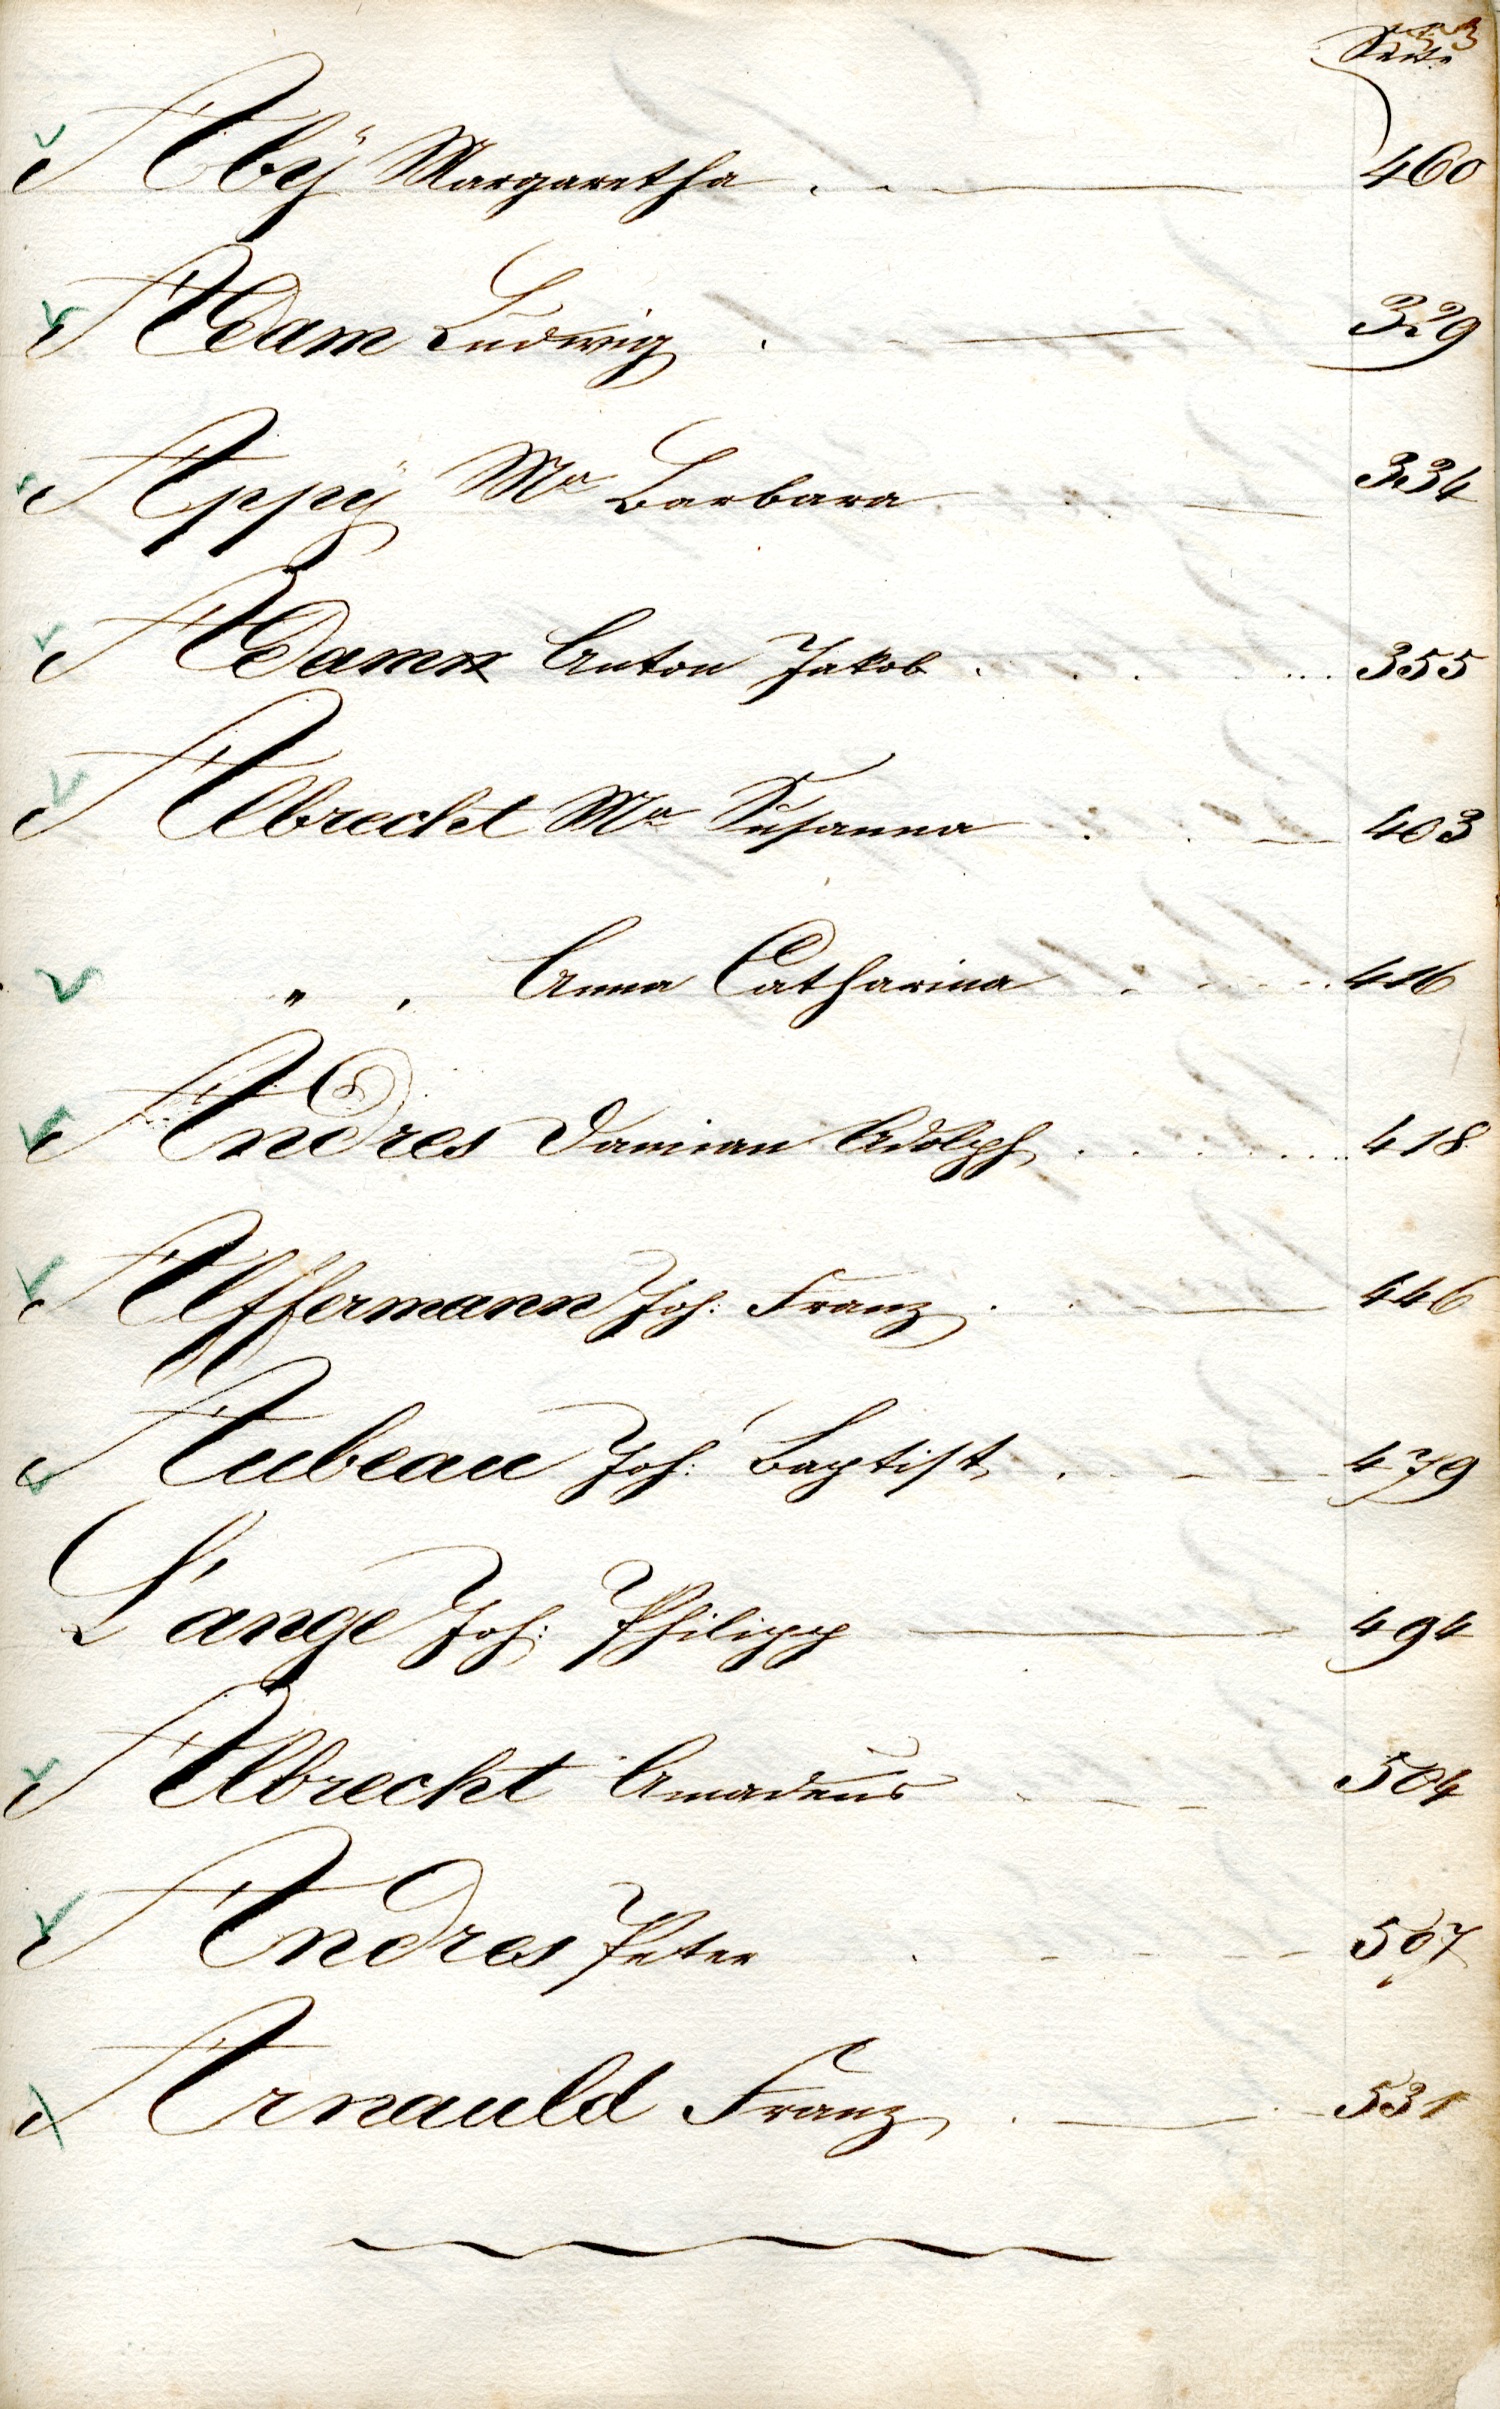 Seite
Abÿ Margaretha . . 460
Adam Ludwig . 329
Appÿ Ma Barbara . 334
Adam Anton Jakob . . . . 355
Albrecht Ma Susanna . . 403
" , Anna Catharina . . . . 416
Andres Damian Adolph . . . . 418
Affermann Joh: Franz . . 446
Aubeau Joh: Baptist . . . 479
L'ange Joh: Philipp 494
Albrecht Amadeus . . . 504
Andres Peter . . . 507
Arnauld Franz . 531